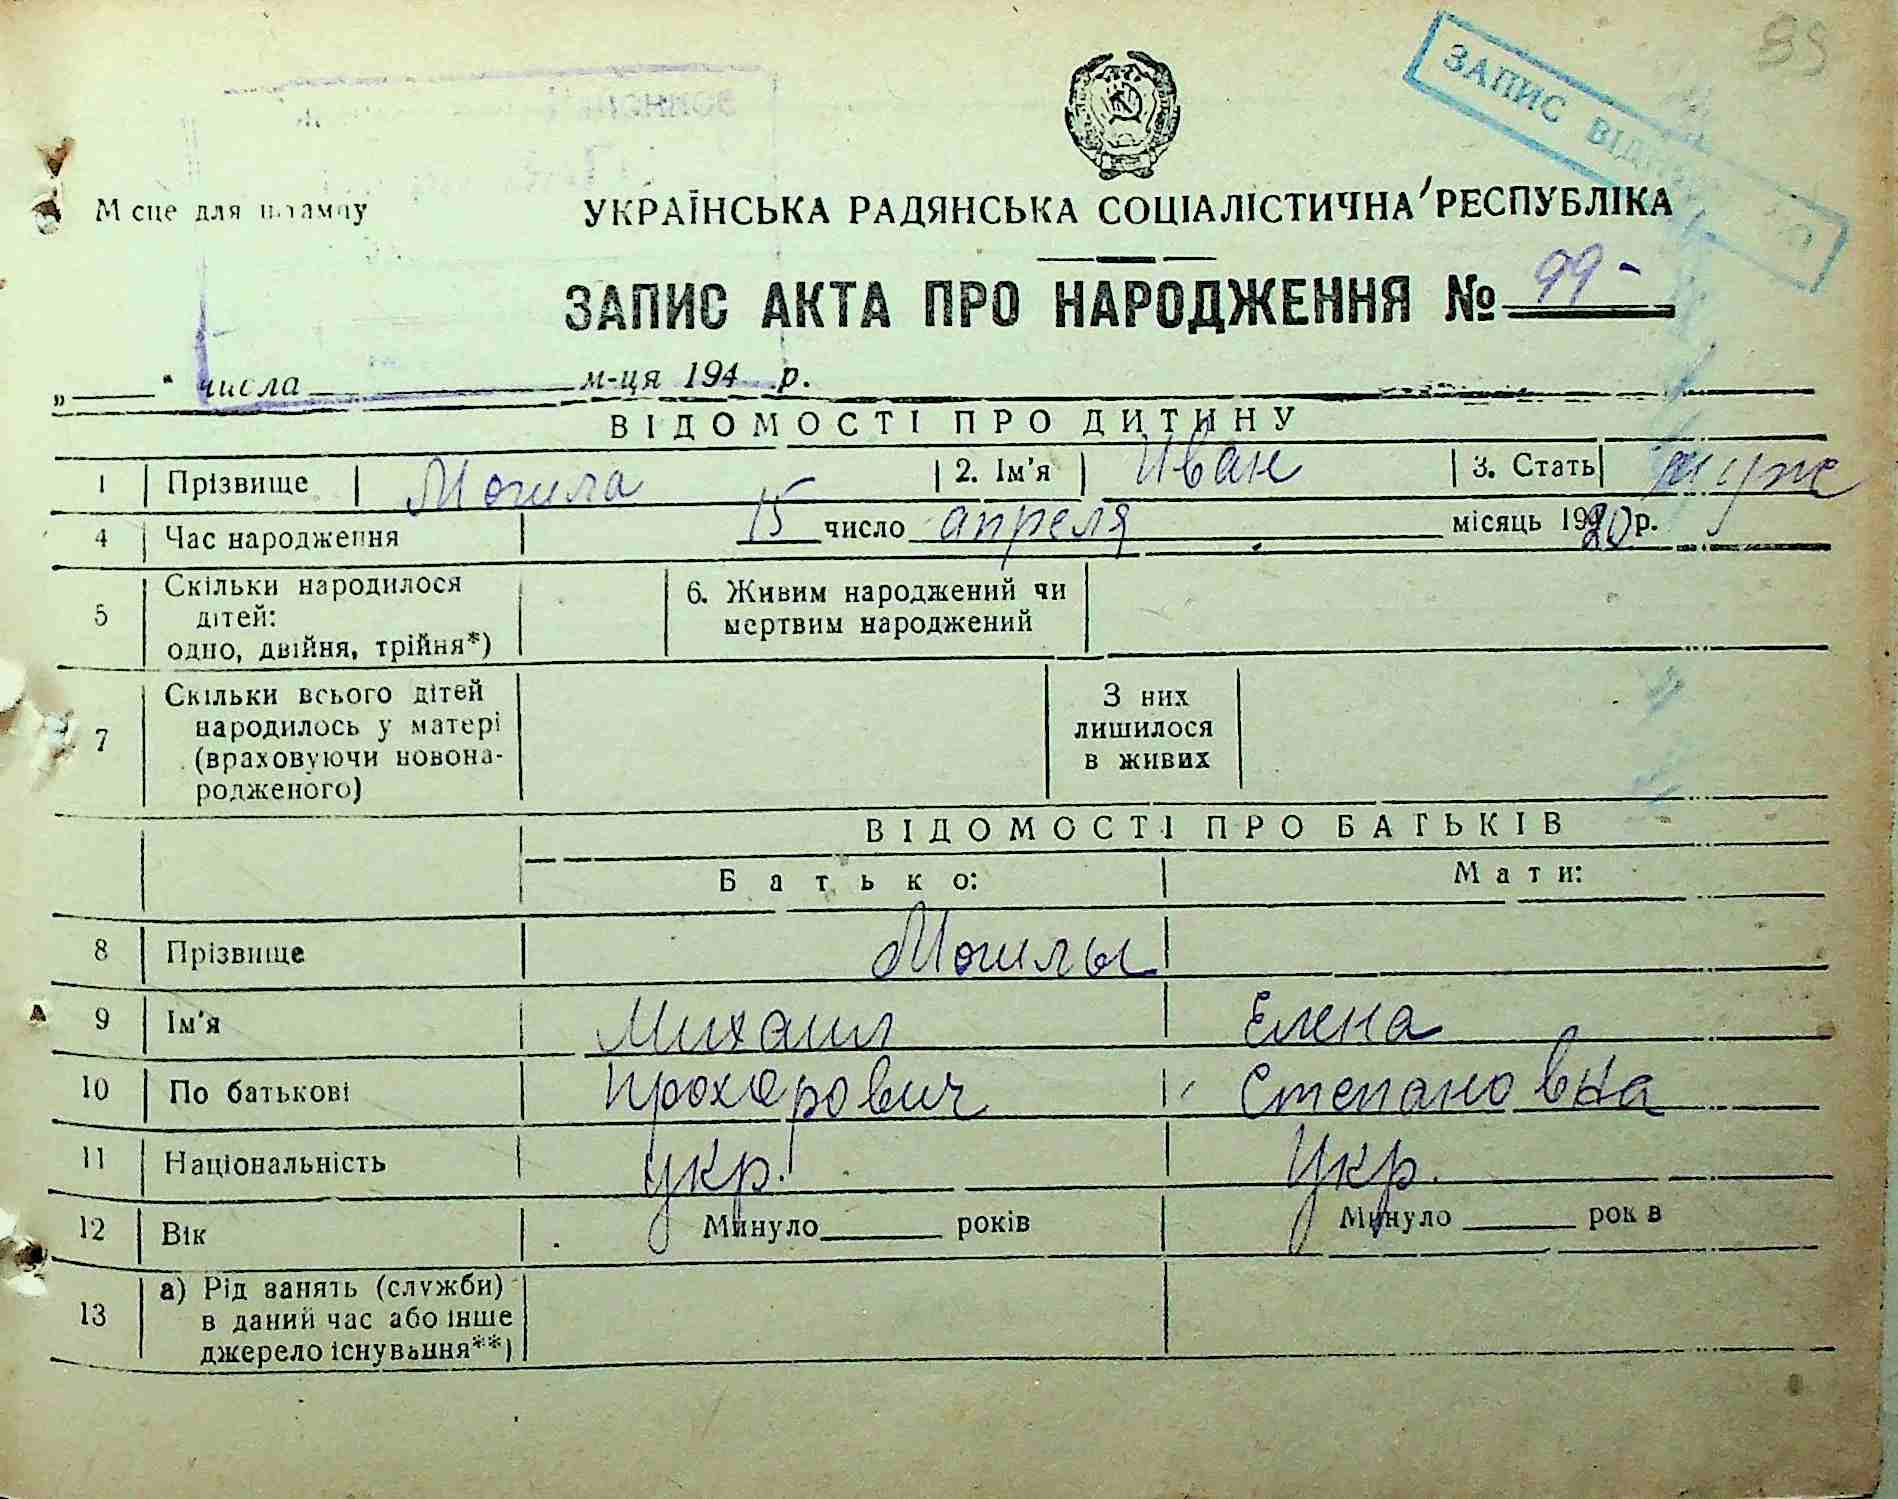 99
ЗАПИС ВІДНОВЛЕНО
Місце для штампу
УКРАЇНСЬКА РАДЯНСЬКА СОЦІАЛІСТИЧНА РЕСПУБЛІКА
ЗАПИС АКТА ПРО НАРОДЖЕННЯ № 99-
„ " числа м-ця 194 р.
ВІДОМОСТІ ПРО ДИТИНУ
1 Прізвище Могила 2. Ім'я Иван 3. Стать муж
4 Час народження 15 число апреля місяць 1920 р.
5 Скільки народилося дітей: одно, двійня, трійня*) 6. Живим народжений чи мертвим народжений
7 Скільки всього дітей народилось у матері (враховуючи новонародженого) З них лишилося в живих
ВІДОМОСТІ ПРО БАТЬКІВ
Батько: Мати:
8 Прізвище Могилы
9 Ім'я Михаил Елена
10 По батькові Прохорович Степановна
11 Національність укр. Укр.
12 Вік Минуло років Минуло років
13 а) Рід занять (служби) в даний час або інше джерело існування**)